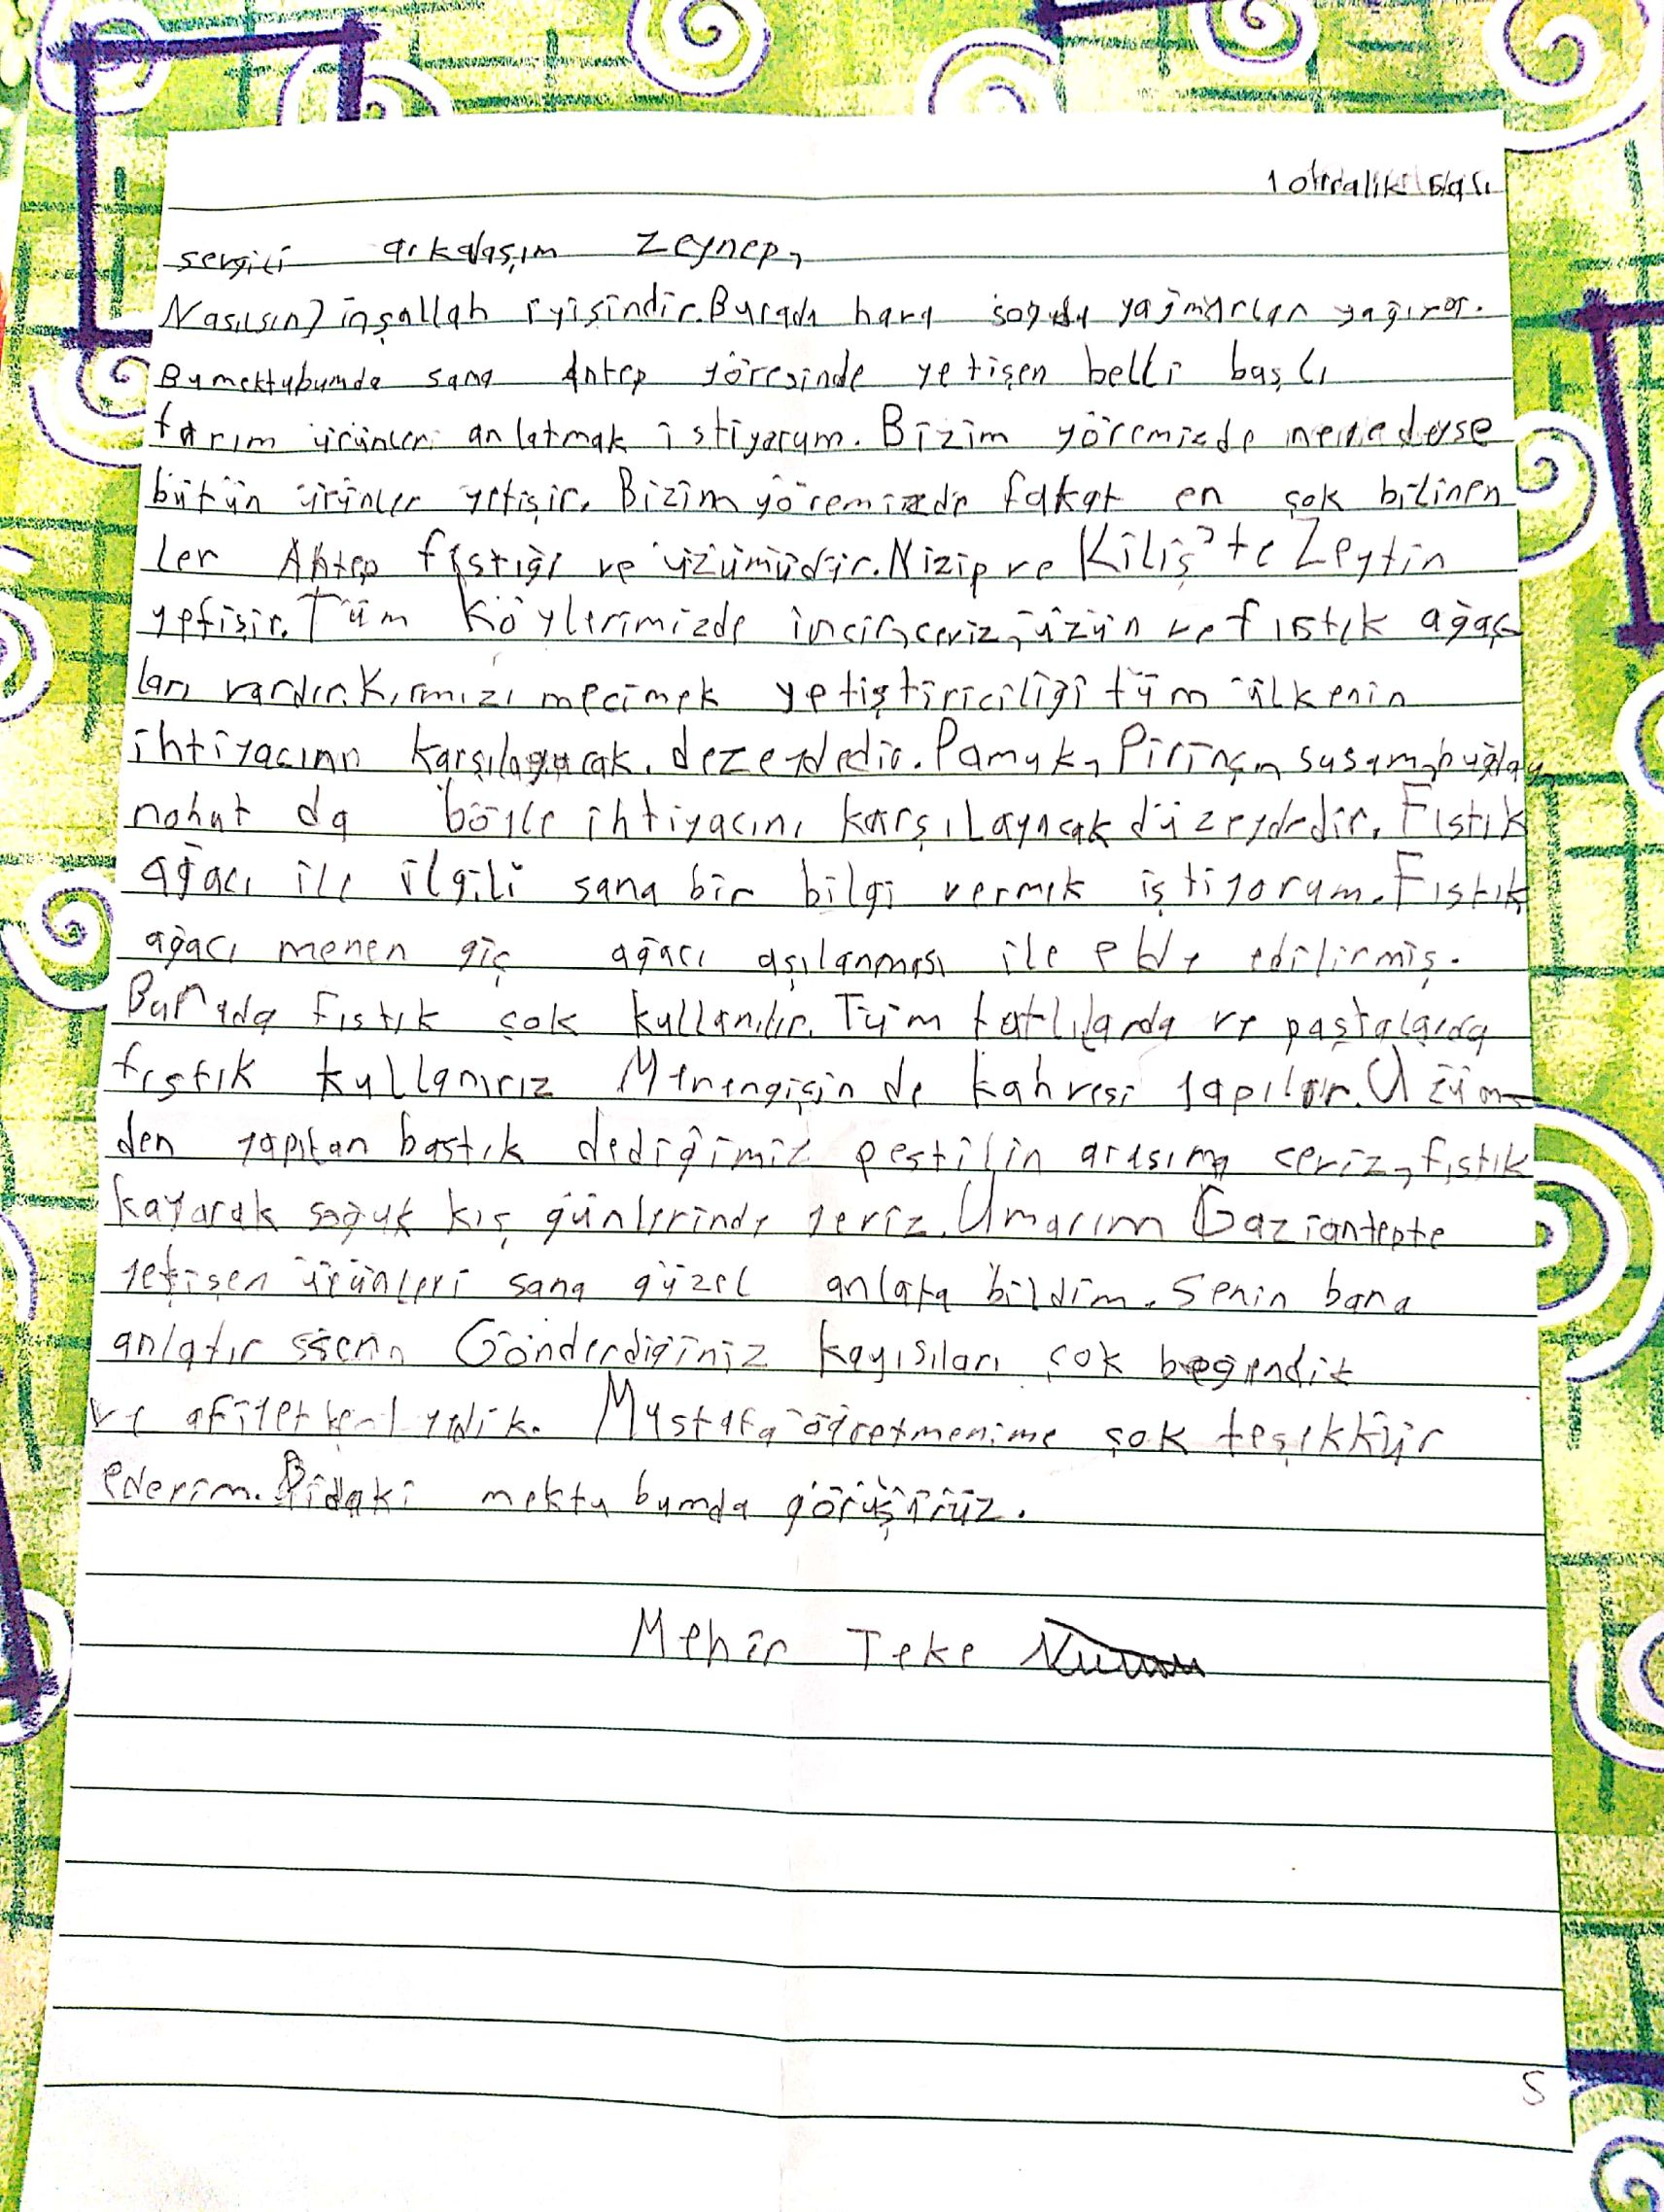 sevgili arkadaşım Zeynep,
Nasılsın? inşallah iyisindir. Burada hava yağmurlar yağıyor.
Bu mektubumda sana Antep yöresinde yetişen belli başlı
tarım ürünleri anlatmak istiyorum. Bizim yöremizde
bütün ürünler yetişir. Bizim yöremizde fakat en çok bilinen
ler Antep fıstığı ve üzümüdür. Nizip ve Kiliş'te Zeytin
yetişir. Tüm köylerimizde incir, ceviz, üzün ve fıstık ağaç
ları vardır. Kırmızı mecimek yetiştiriciliği tüm ülkenin
ihtiyacını karşılayacak. dezeydedir. Pamuk, Pirinç, susam, buğday,
nohut da böyle ihtiyacını karşılayacak düzeydedir. Fıstık
ağacı ile ilgili sana bir bilgi vermek iştiyorum. Fıstık
ağacı menen giç ağacı aşılanması ile elde edilirmiş.
Burada Fıstık çok kullanılır. Tüm tatlılarda ve paştalarda
fıstık kullanırız Menengiçin de kahvesi yapılır. Üzüm
den yapılan bastık dediğimiz pestilin arasına ceviz, fıstık
koyarak soğuk kış günlerinde yeriz. Umarım Gaziantepte
yetişen ürünleri sana güzel anlata bildim. Senin bana
anlatır Gönderdiğiniz kayısıları çok beğendik
ve yedik. Mustafa öğretmenime çok teşekkür
ederim. Bidaki mektu bumda görüşürüz.
Mehir Teke
5